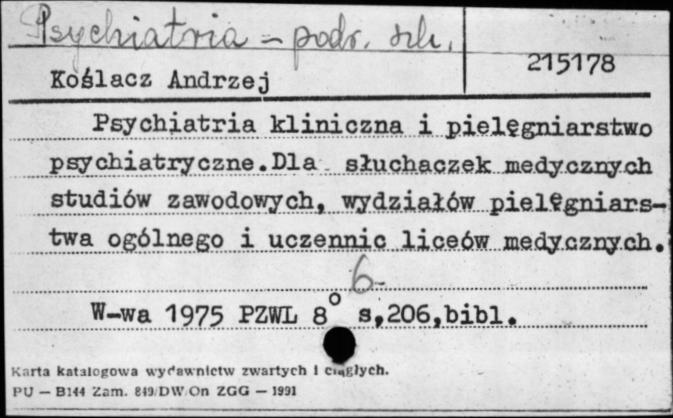 Psychiatria - podr. szk.
215178
Koślacz Andrzej
Psychiatria kliniczna i pielęgniarstwo
psychiatryczne.Dla słuchaczek medycznych
studiów zawodowych, wydziałów pielęgniars-
twa ogólnego i uczennic liceów medycznych.
6-
W-wa 1975 PZWL 8° s,206,bibl.
Karta katalogowa wydawnictw zwartych i ciągłych.
PU — B144 Zam. 849/DW/On ZGG — 1991